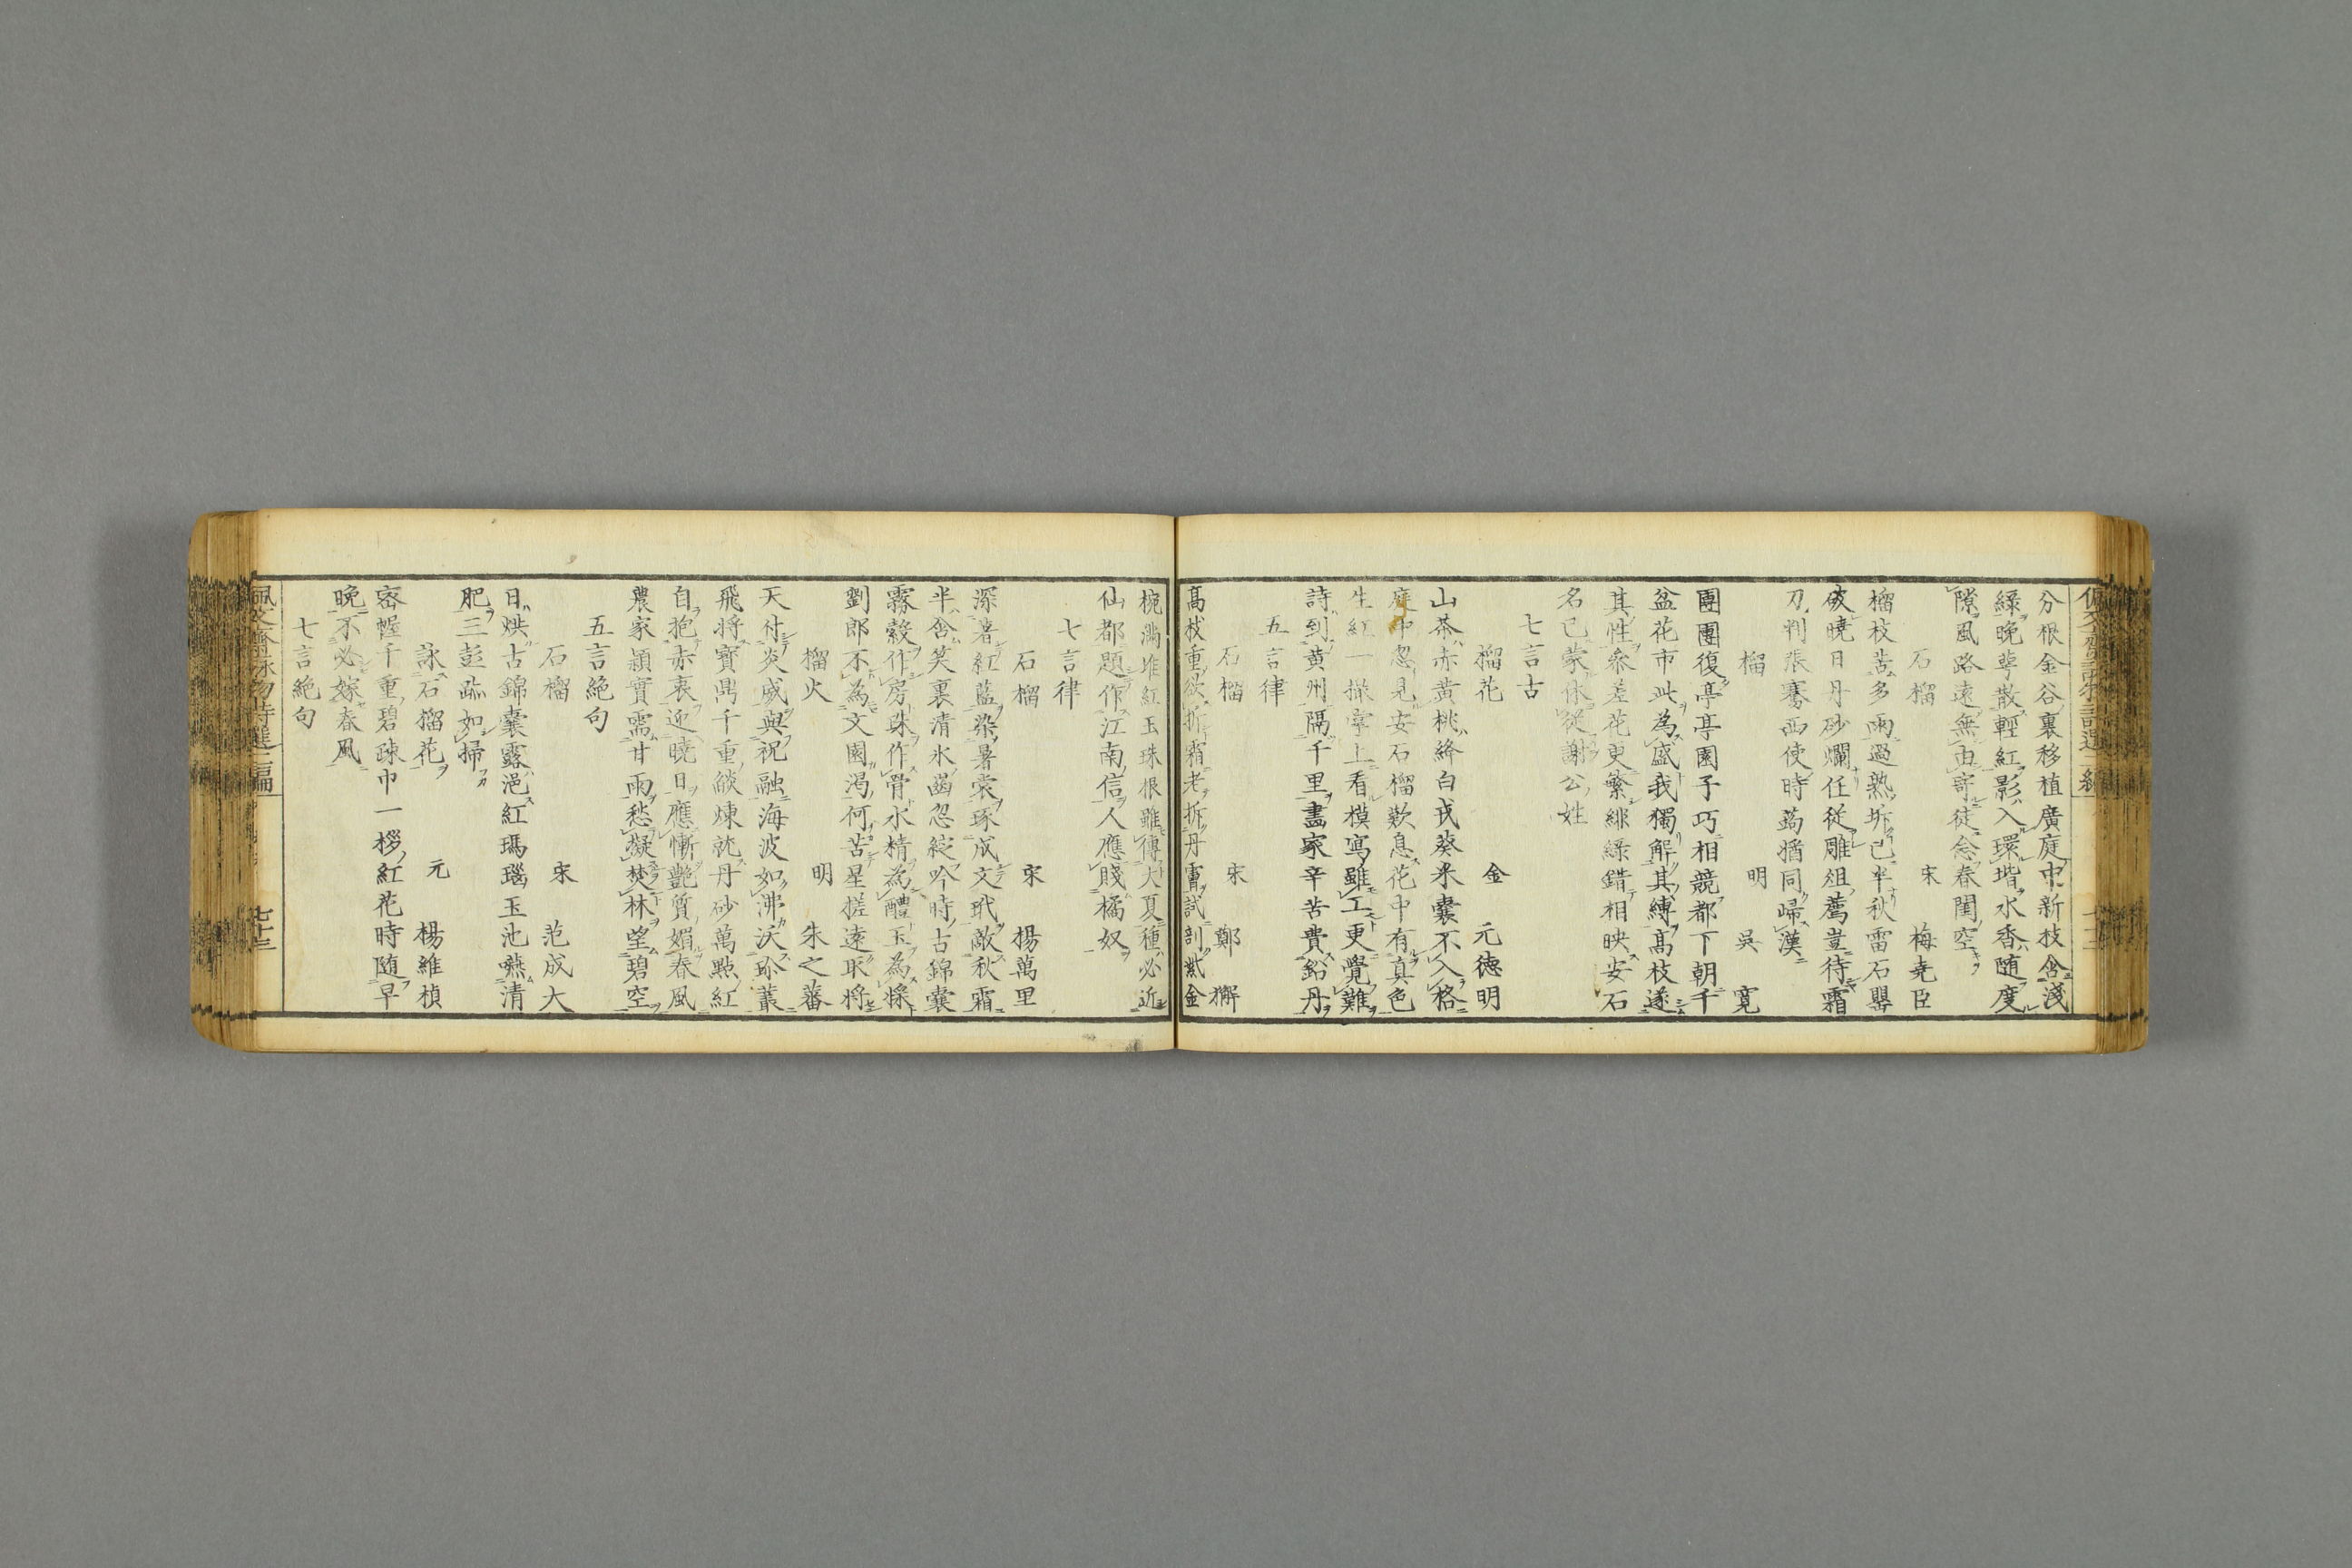 分根金谷裏移植廣庭中新枝含淺
綠晚蕚散輕紅影入環堦水香隨度
隙風路遠無由寄徒念春閨空
石榴 宋 梅尭臣
榴枝苦多雨過熟拆已半秋雷石罌
破曉日丹砂爛任從雕俎薦豈待霜
刀判張騫西使時蒟醬同歸漢
榴 明 吳 寛
團團復亭亭園子巧相競都下朝千
盆花市此為盛我獨解其縛髙枝遂
其性叅差花更繁緋綠錯相映安石
名已蒙休從謝公姓
七言古
榴花 金 元德明
山茶赤黃桃絳白戎葵米囊不入格
庭中忽見安石榴歎息花中有真色
生紅一撮掌上看模寫雖工更覺難
詩到黃州隔千里畫家辛苦費鉛丹
五言律
石榴 宋 鄭 獬
髙枝重欲折霜老拆丹膚試剖紫金
椀滿堆紅玉珠根雖傳大夏種必近
仙都題作江南信人應賤橘奴
七言律
石榴 宋 楊萬里
深著紅藍染暑裳琢成文玳敵秋霜
半含笑裏清氷齒忽綻吟時古錦囊
霧縠作房珠作骨水精為醴玉為漿
劉郎不為文園渴何苦星槎遠取將
榴火 明 朱之蕃
天付炎威與祝融海波如沸沃珍叢
飛將寶鼎千重燄煉就丹砂萬點紅
自抱赤衷迎曉日應慚艷質媚春風
農家頴實需甘雨愁凝焚林望碧空
五言絕句
石榴 宋 范成大
日烘古錦囊露浥紅瑪瑙玉池嚥清
肥三彭跡如掃
詠石榴花 元 楊維楨
密幄千重碧疎巾一桚紅花時隨早
晚不必嫁春風
七言絕句
佩文齋詠物詩選二編 七十三